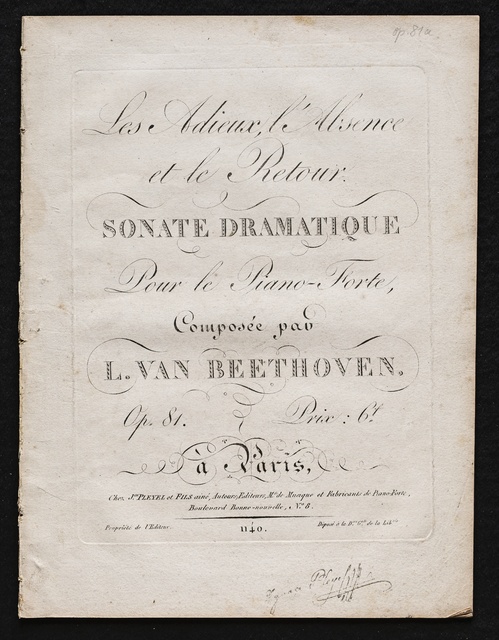 op. 81a
Les Adieux, l'Absence
et le Retour.
SONATE DRAMATIQUE
Pour le Piano-Forte,
Composée par
L. VAN BEETHOVEN.
Op. 81. Prix: 6f
à Paris,
Chez, Jce PLEYEL et FILS ainé, Auteurs, Editeurs, Mds de Musique et Fabricants de Piano-Forte,
Boulevard Bonne-nouvelle, No 8.
Propriété de l'Editeur. 1140. Déposé à la Don Gle de la Libie
Ignace Pleyel